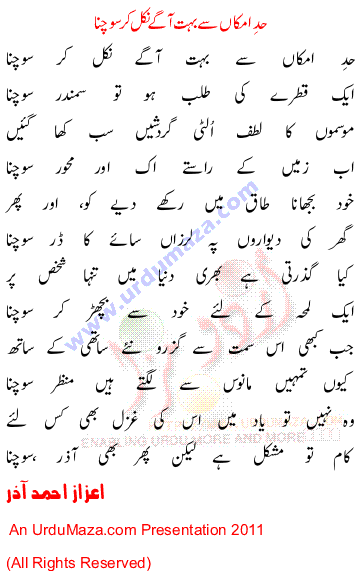 حدِ امکاں سے بہت آگے نکل کر سوچنا
حدِ امکاں سے بہت آگے نکل کر سوچنا
ایک قطرے کی طلب ہو تو سمندر سوچنا
موسموں کا لطف اُلٹی گردشیں سب کھا گئیں
اب زمیں کے راستے اک اور محور سوچنا
خود بجھانا طاق میں رکھے دیے کو، اور پھر
گھر کی دیواروں پہ لرزاں سائے کا ڈر سوچنا
کیا گذرتی ہے بھری دنیا میں تنہا شخص پر
ایک لمحہ کے لئے خود سے بچھڑ کر سوچنا
جب کبھی اس سمت سے گزرو نئے ساتھی کے ساتھ
کیوں تمہیں مانوس سے لگتے ہیں منظر سوچنا
وہ نہیں تو یاد میں اس کی غزل بھی کس لئے
کام تو مشکل ہے لیکن پھر بھی آذر ،سوچنا
اعزاز احمد آذر
An UrduMaza.com Presentation 2011
(All Rights Reserved)
www.urdumaza.com
اردو مزہ
ENABLING URDU MORE AND MORE